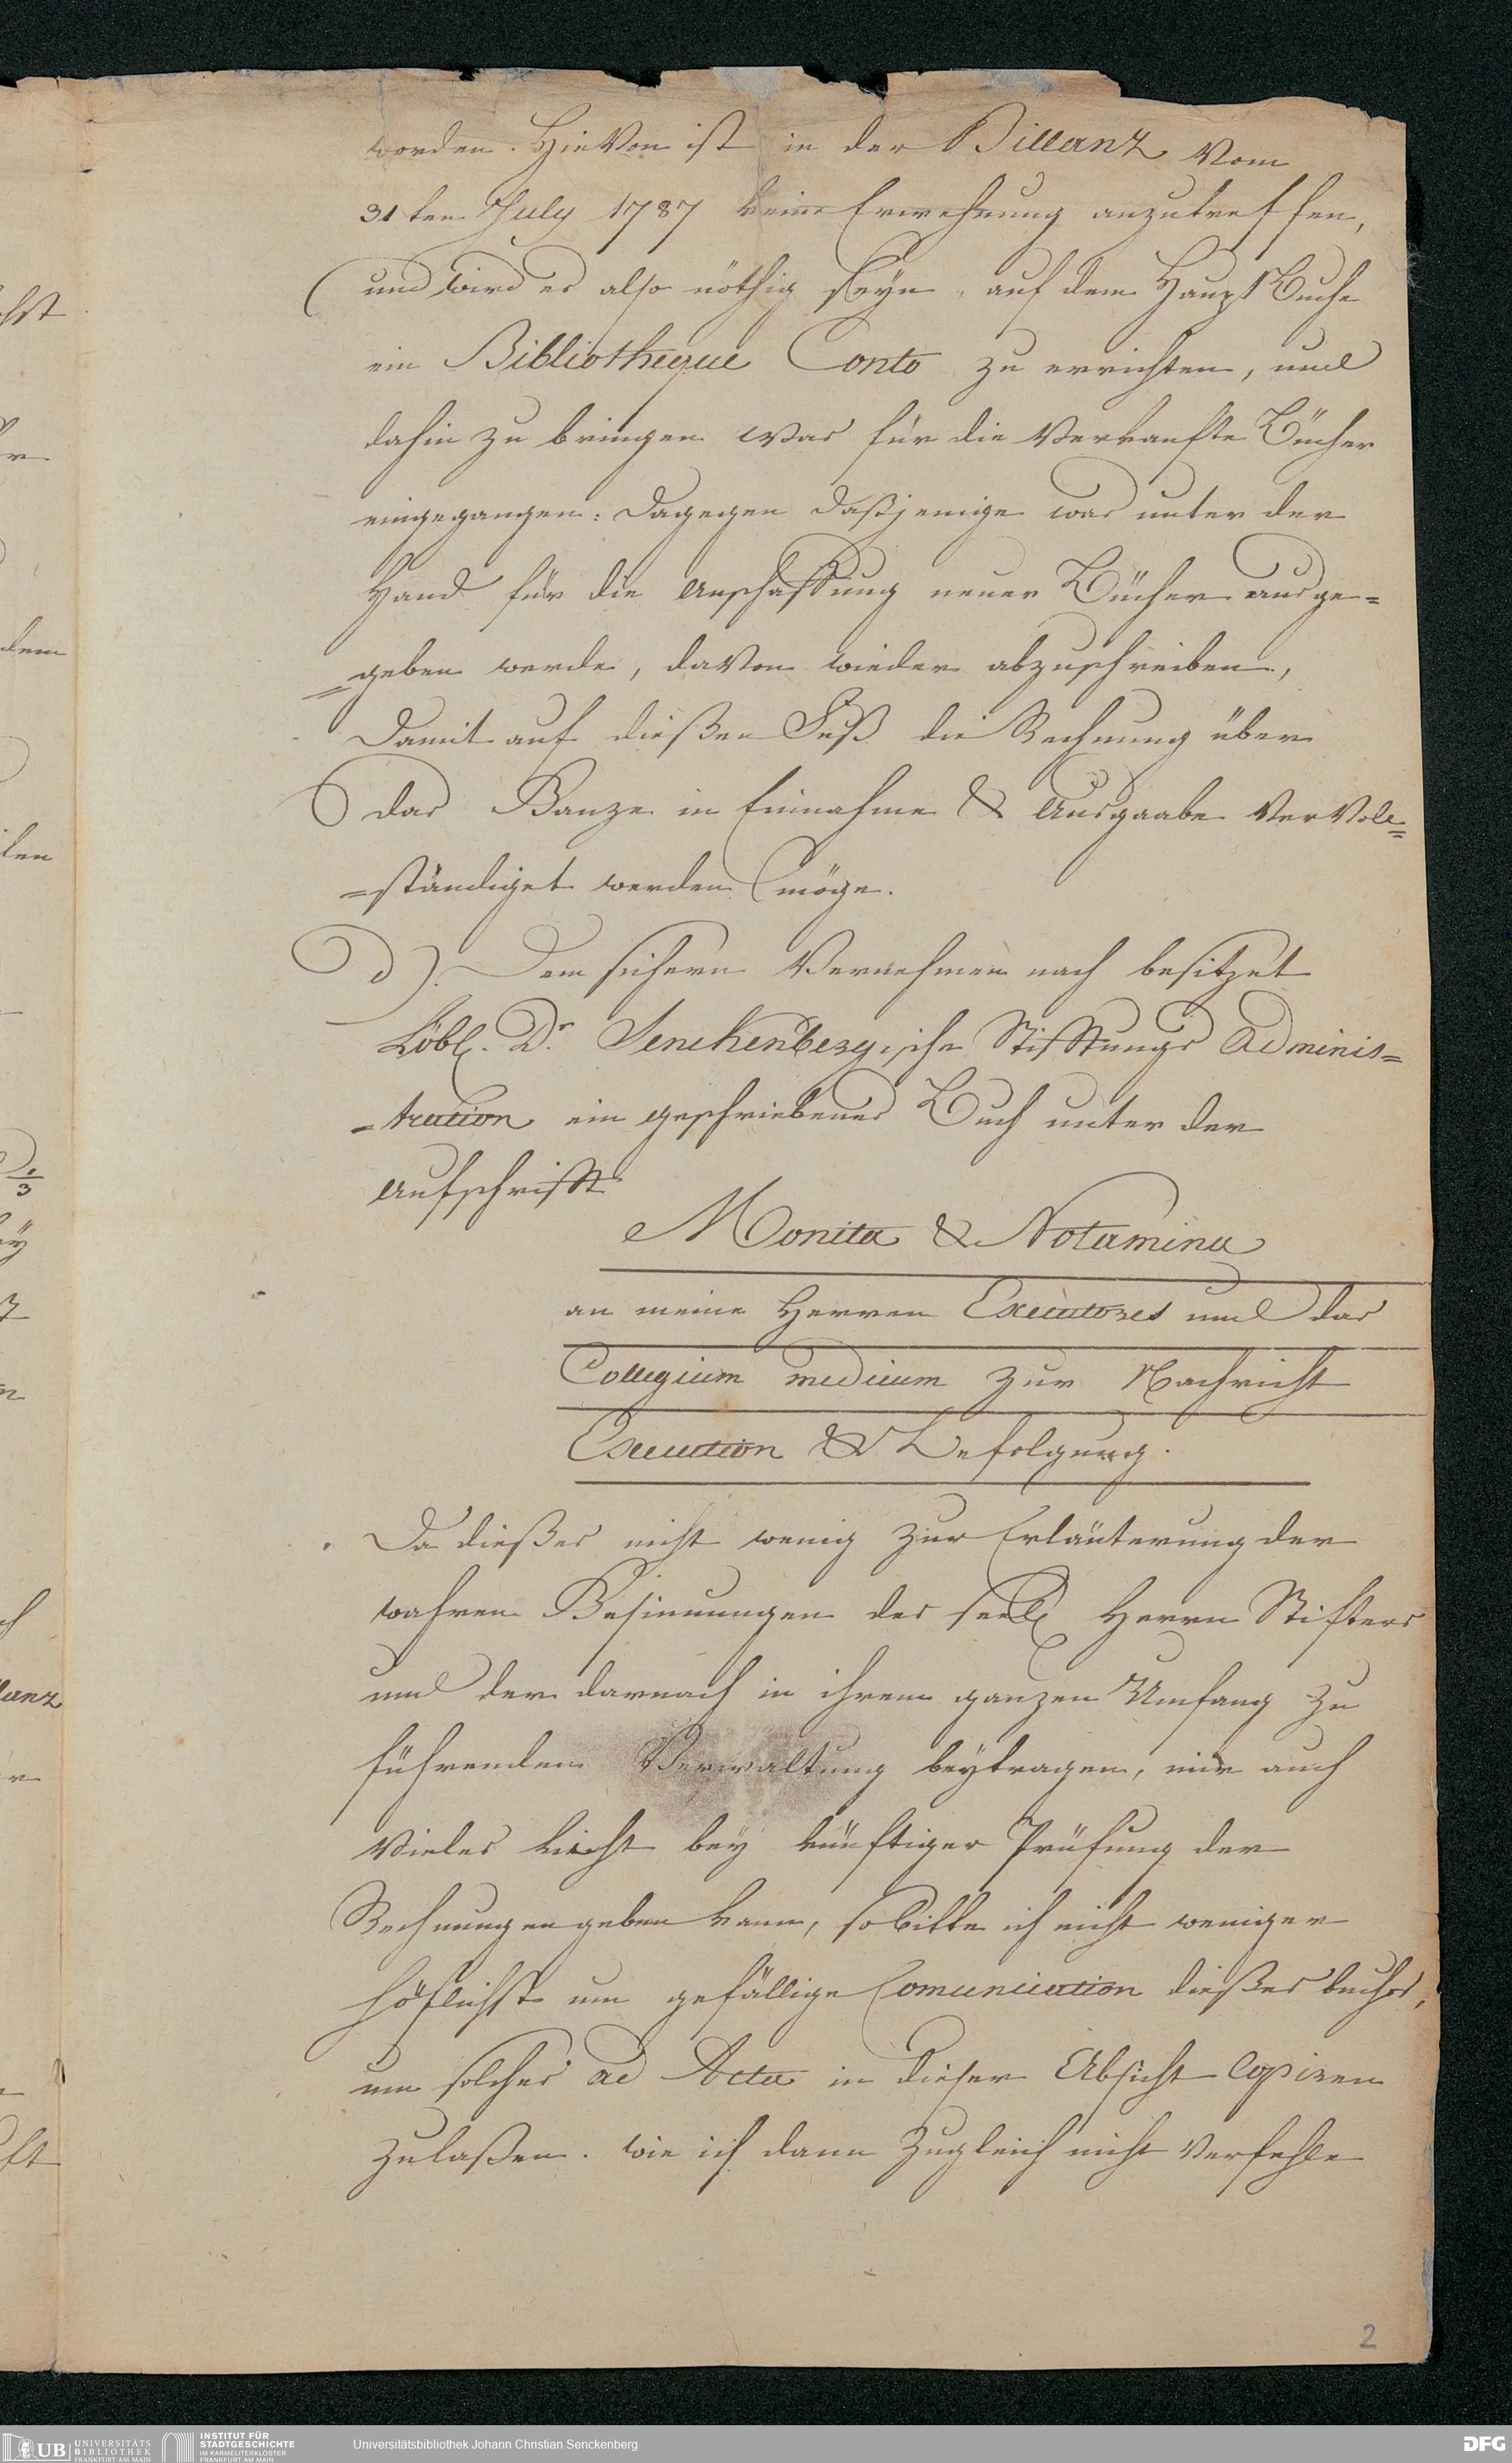 worden. Hievon ist in der Billanz vom
31ten July 1787 keine Erwehnung anzutreffen,
und wird es also nöthig seyn, auf dem Haupt Buche
ein Bibliotheque Conto zu errichten, und
dahin zu bringen was für die verkaufte Bücher
eingegangen: dagegen dasjenige was unter der
Hand für die Anschaffung neuer Bücher ausge=
=geben werde, davon wieder abzuschreiben,
damit auf dießen Fuß die Rechnung über
das Ganze in Einnahme & Ausgaabe vervoll=
=ständiget werden möge.
d). Dem sichern Vernehmen nach besitzet
Löbl. Dr. Senckenbergische Stifftungs Adminis=
=tration ein geschriebenes Buch unter der
Aufschrifft
Monita & Notamina
an meine Herren Executores und das
Collegium medicum zur Nachricht
Execution & Befolgung.
Da dießes nicht wenig zur Erläuterung der
wahren Gesinnungen des seel. Herrn Stifters
und der darnach in ihrem ganzen Umfang zu
führenden Verwaltung beytragen, mir auch
vieles Licht bey künftiger Prüfung der
Rechnungen geben kann, so bitte ich nicht weniger
höflichst um gefällige Comunication dießes buches,
um solches ad Acta in dieser Absicht Copiren
zulaßen. wie ich dann zugleich nicht verfehle
2
UB UNIVERSITÄTS
BIBLIOTHEK
FRANKFURT AM MAIN
INSTITUT FÜR
STADTGESCHICHTE
IM KARMELITERKLOSTER
FRANKFURT AM MAIN
Universitätsbibliothek Johann Christian Senckenberg
DFG